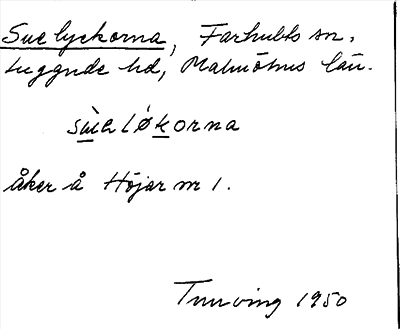 Suelyckorna, Farhults sn,
Luggude hd, Malmöhus län.
sùəløkorna
åker å Höjar nr 1.
1950